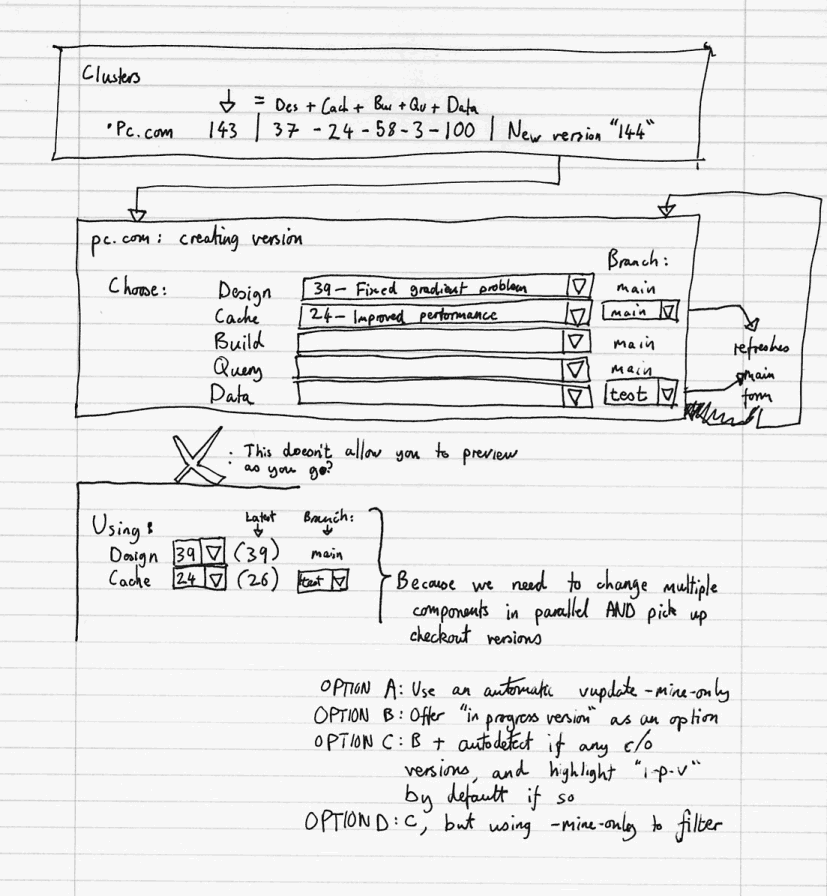 Clusters
= Des + Cach + Bui + Qu + Data
• Pc.com 143 | 37 - 24 - 58 - 3 - 100 | New version "144"
pc.com: creating version
Branch:
Choose: Design 39 - Fixed gradient problem main
Cache 24 - Improved performance main
Build main
Query main
Data test
refreshes
main
form
X : This doesn't allow you to preview
as you go?
Using: Latest Branch:
Design 39 (39) main
Cache 24 (26) test
Because we need to change multiple
components in parallel AND pick up
checkout versions
OPTION A: Use an automatic vupdate -mine-only
OPTION B: Offer "in progress version" as an option
OPTION C: B + autodetect if any c/o
versions, and highlight "i-p-v"
by default if so
OPTION D: C, but using -mine-only to filter